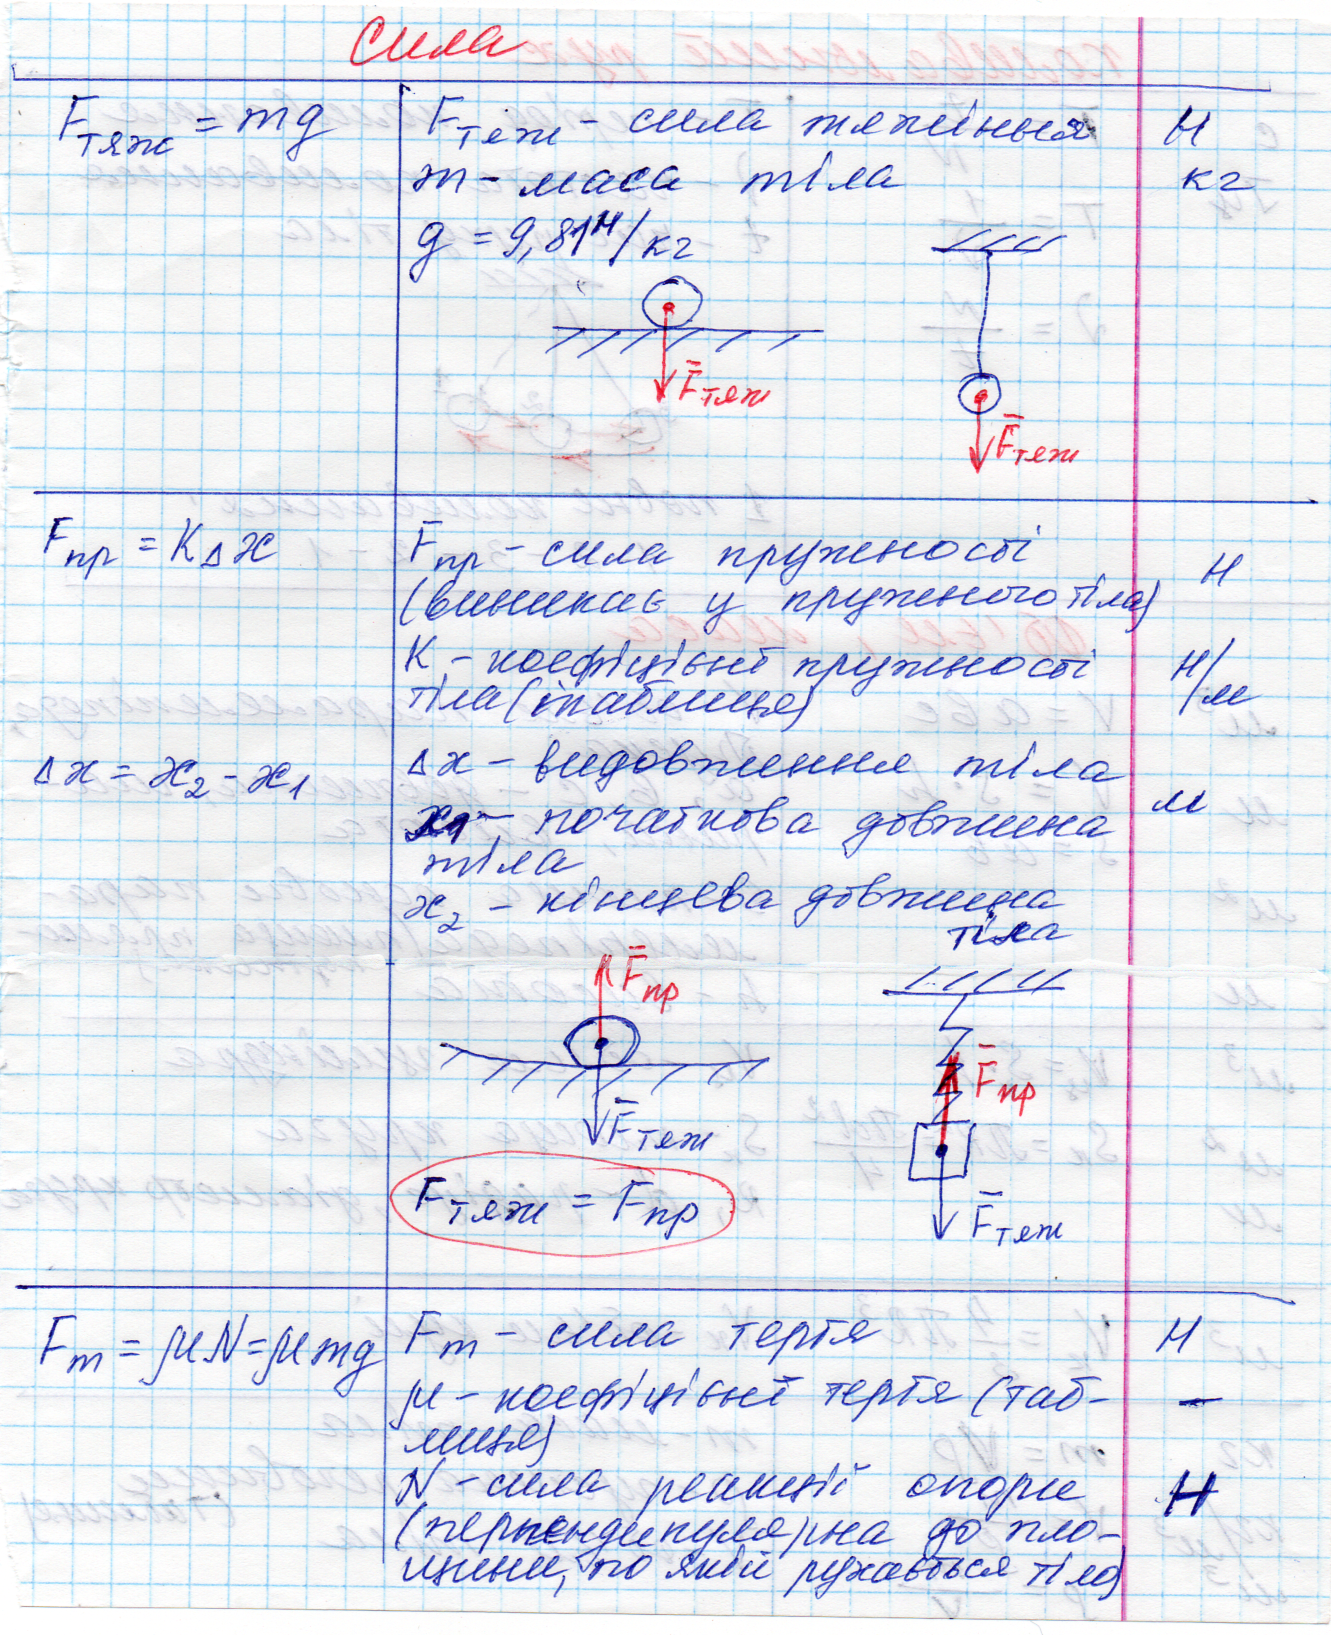 Сила
Fтяж = mg
Fтяж - сила тяжіння Н
m - маса тіла кг
g = 9,81 Н/кг
F̄тяж
F̄тяж
Fпр = KΔx
Fпр - сила пружності Н
(виникає у пружного тіла)
K - коефіцієнт пружності Н/м
тіла (таблиця)
Δx = x₂ - x₁
Δx - видовження тіла м
x₁ - початкова довжина
тіла
x₂ - кінцева довжина
тіла
F̄пр
F̄тяж
F̄пр
F̄тяж
Fтяж = Fпр
Fт = μN = μmg
Fт - сила тертя Н
μ - коефіцієнт тертя (таб- –
лиця)
N - сила реакції опори Н
(перпендикулярна до пло-
щини, по якій рухається тіло)